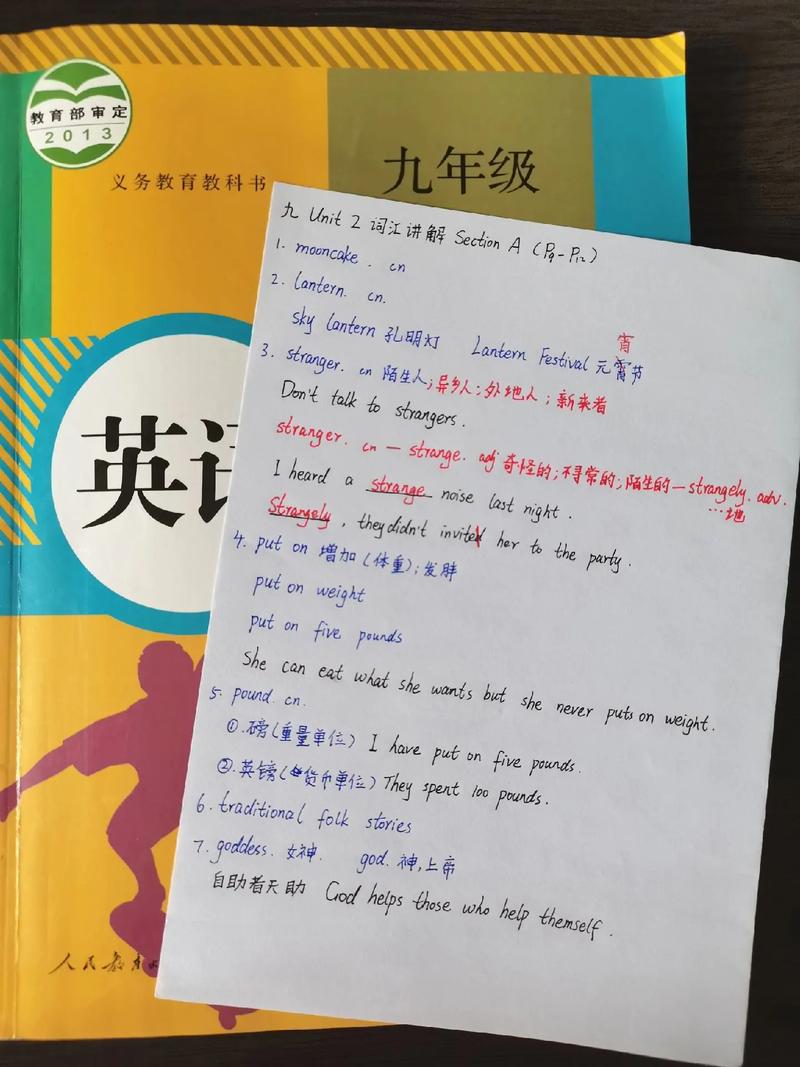 教育部审定
2013
义务教育教科书
九年级
英语
人民教育
九 Unit 2 词汇讲解 Section A (P9-P12)
1. mooncake. cn
2. lantern. cn.
sky lantern 孔明灯 Lantern Festival 元宵节
3. stranger. cn 陌生人; 异乡人; 外地人; 新来者
Don't talk to strangers.
stranger. cn — strange. adj 奇怪的; 不寻常的; 陌生的 — strangely. adv. …地
I heard a strange noise last night.
Strangely, they didn't invite her to the party.
4. put on 增加(体重); 发胖
put on weight
put on five pounds
She can eat what she wants but she never puts on weight.
5. pound. cn.
①.磅(重量单位) I have put on five pounds.
②.英镑(货币单位) They spent 100 pounds.
6. traditional folk stories
7. goddess. 女神. god. 神,上帝
自助者天助 God helps those who help themself.